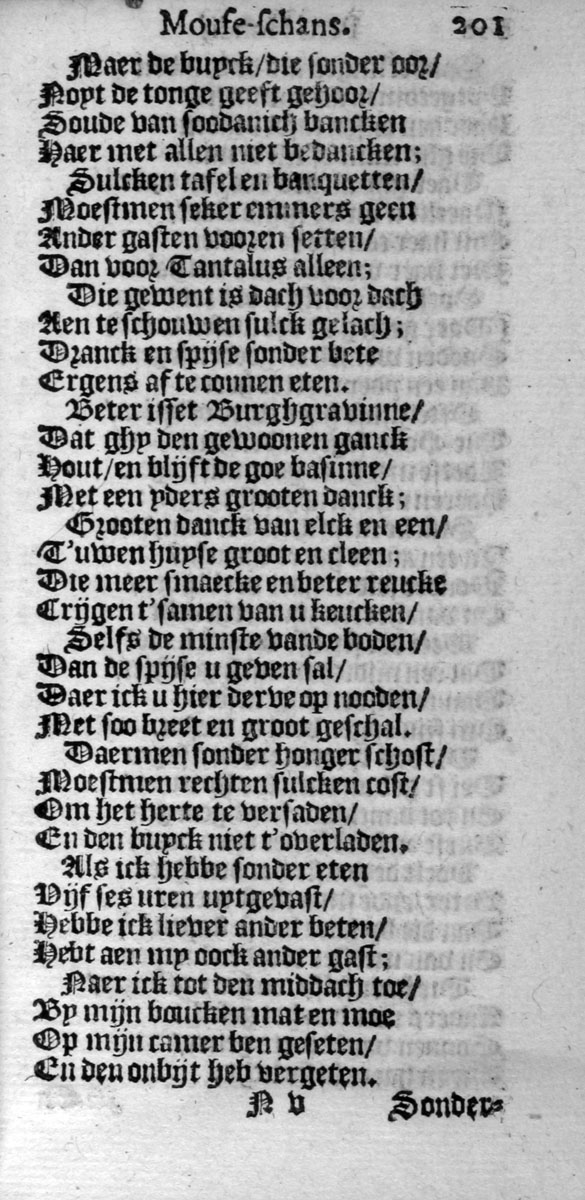 Mouse-schans. 201
Maer de buyck/die sonder oor/
Noyt de tonge geeft gehoor/
Soude van soodanich bancken
Haer met allen niet bedancken;
Sulcken tafel en banquetten/
Moestmen seker emmers geen
Ander gasten vooren setten/
Dan voor Tantalus alleen;
Die gewent is dach voor dach
Aen te schouwen sulck gelach;
Dranck en spijse sonder bete
Ergens af te connen eten.
Beter isset Burghgravinne/
Dat ghy den gewoonen ganck
Hout/en blijft de goe basinne/
Met een yders grooten danck;
Grooten danck van elck en een/
T'uwen huyse groot en cleen;
Die meer smaecke en beter reucke
Crijgen t'samen van u keucken/
Selfs de minste vande boden/
Dan de spijse u geven sal/
Daer ick u hier derve op nooden/
Met soo breet en groot geschal.
Daermen sonder honger schost/
Moestmen rechten sulcken cost/
Om het herte te versaden/
En den buyck niet t'overladen.
Als ick hebbe sonder eten
Vijf ses uren uytgevast/
Hebbe ick liever ander beten/
Hebt aen my oock ander gast;
Naer ick tot den middach toe/
By mijn boucken mat en moe
Op mijn camer ben geseten/
En den onbijt heb vergeten.
N v Sonder-